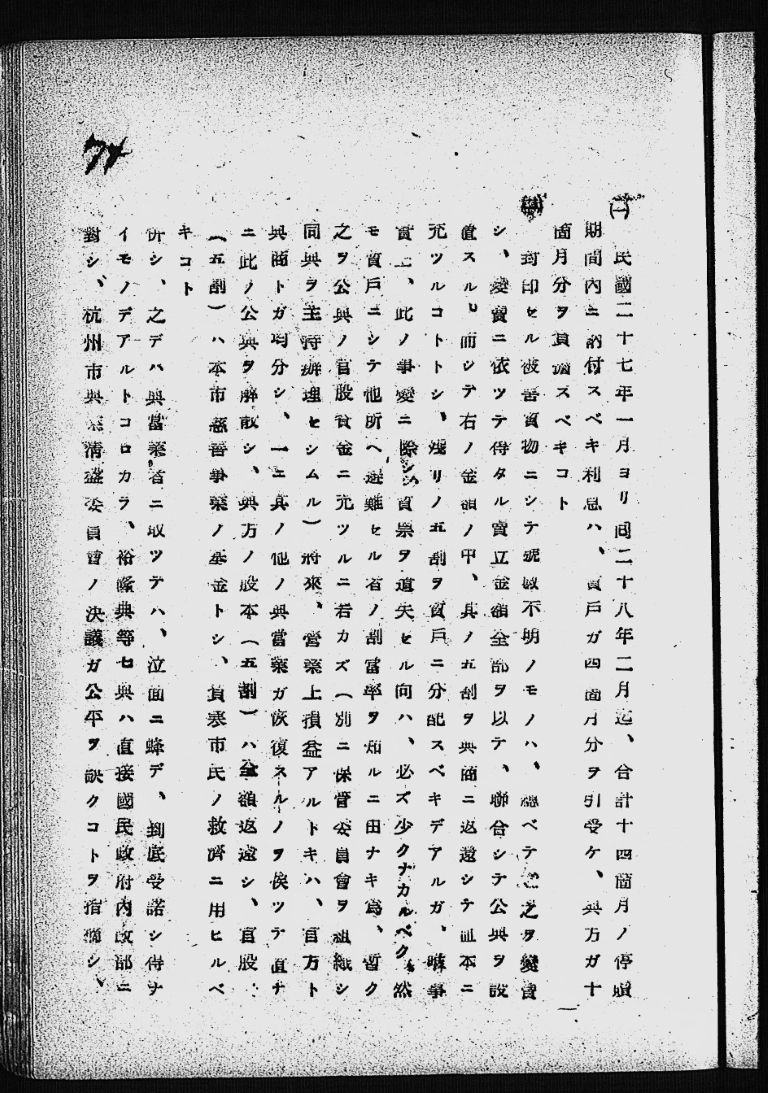 (一) 民國二十七年一月ヨリ同二十八年二月迄、合計十四箇月ノ停贖
期間內ニ納付スベキ利息ハ、質戶ガ四箇月分ヲ引受ケ、典方ガ十
箇月分ヲ負擔スベキコト
封印セル被害質物ニシテ號數不明ノモノハ、總ベテ之ヲ變賣
シ、變賣ニ依ツテ得タル賣立金額全部ヲ以テ、聯合シテ公典ヲ設
置スル而シテ右ノ金額ノ中、其ノ五割ヲ典商ニ返還シテ血本ニ
充ツルコトトシ、殘リノ五割ヲ質戶ニ分配スベキデアルガ、事
實上、此ノ事變ニ際シ質票ヲ遺失セル向ハ、必ズ少クナカルベク、然
モ質戶ニシテ他所ヘ避難セル者ノ割當率ヲ知ルニ由ナキ爲、暫ク
之ヲ公典ノ官股資金ニ充ツルニ若カズ(別ニ保管委員會ヲ組織シ
同典ヲ主持辦理セシムル)將來、營業上損益アルトキハ、官方ト
典商トガ均分シ、一エ其ノ他ノ典當業ガ恢復スルノヲ俟ツテ直ナ
ニ此ノ公典ヲ解散シ、典方ノ股本(五割)ハ全額返還シ、官股
(五割)ハ本市慈善事業ノ基金トシ、貧寒市民ノ救濟ニ用ヒルベ
キコト
併シ、之デハ典當業者ニ取ツテハ、泣面ニ蜂デ、到底受諾シ得ナ
イモノデアルトコロカラ、裕隆典等七典ハ直接國民政府內政部ニ
對シ、杭州市典業清盤委員會ノ決議ガ公平ヲ缺クコトヲ指摘シ、
74